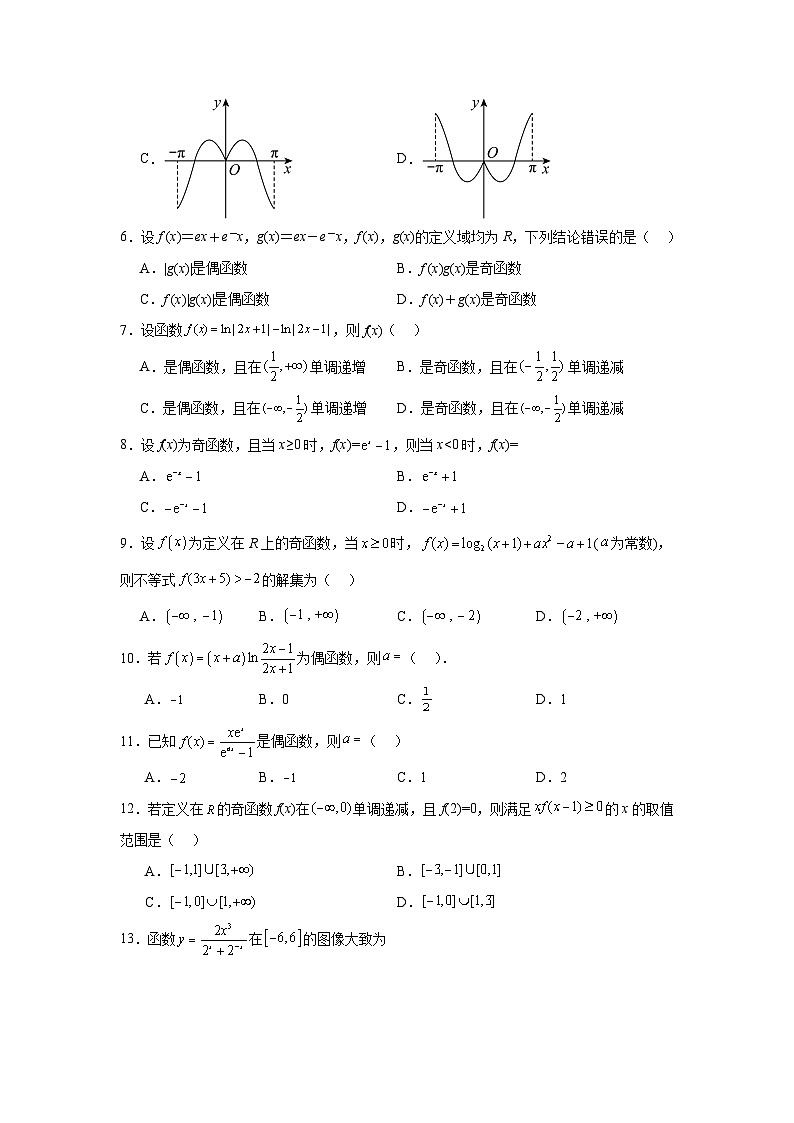 C. y −π π O x D. y O −π π x
6.设 f (x)=ex+e-x,g(x)=ex-e-x,f (x),g(x)的定义域均为 R,下列结论错误的是( )
A.|g(x)|是偶函数 B.f (x)g(x)是奇函数
C.f (x)|g(x)|是偶函数 D.f (x)+g(x)是奇函数
7.设函数 f (x) = ln| 2x +1| −ln| 2x −1|,则 f(x)( )
A.是偶函数,且在(1/2,+∞)单调递增 B.是奇函数,且在(−1/2,1/2)单调递减
C.是偶函数,且在(−∞,−1/2)单调递增 D.是奇函数,且在(−∞,−1/2)单调递减
8.设 f(x)为奇函数,且当 x≥0 时,f(x)=eˣ −1,则当 x<0 时,f(x)=
A.e⁻ˣ −1 B.e⁻ˣ +1
C.−e⁻ˣ −1 D.−e⁻ˣ +1
9.设 f(x)为定义在 R 上的奇函数,当 x ≥ 0时, f(x) = log₂(x+1)+ax² −a+1( a为常数),
则不等式 f(3x+5) > −2的解集为( )
A.(−∞ , −1) B.(−1 , +∞) C.(−∞ , −2) D.(−2 , +∞)
10.若 f(x) = (x+a)ln (2x−1)/(2x+1) 为偶函数,则a = ( ).
A.−1 B.0 C.1/2 D.1
11.已知 f(x) = xeˣ/(eᵃˣ −1) 是偶函数,则a = ( )
A.−2 B.−1 C.1 D.2
12.若定义在 R 的奇函数 f(x)在(−∞,0)单调递减,且 f(2)=0,则满足 xf(x−1) ≥ 0的 x 的取值
范围是( )
A.[−1,1]∪[3,+∞) B.[−3,−1]∪[0,1]
C.[−1,0]∪[1,+∞) D.[−1,0]∪[1,3]
13.函数 y = 2x³/(2ˣ + 2⁻ˣ) 在[−6,6]的图像大致为